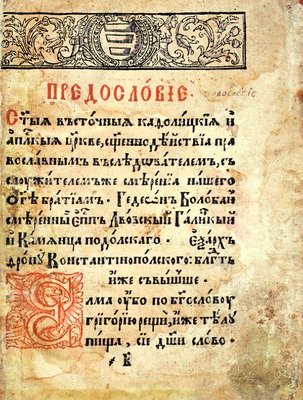 ПРЕДОСЛО́ВІЕ.
С҃тыѧ въсто́чныѧ каѳоли́цкїѧ и҆
а҆п҃лкыѧ цр҃кве, сщ҃еннодѣ́йствїа пра
восла́внымъ въслѣ́дꙋвателем, съ
слꙋжи́телемъже смѣре́нїа нашего
Ѻ҆ Х҃ѣ бра́тїамъ. Гедеѡ́нъ Болоба́нъ
смѣре́нныи Е҆п҃пъ Лво́вскый Га́ли́цкый
и҆ Ка́мѧнца подо́лскаго. Е҆ѯа́рхъ
ѳро́нꙋ Константїнопо́лского: бл҃гть
и҆́же съвы́шше.
ѕлма ᲂу҆́бо по бг҃осло́вꙋ
григо́рїю рещи, и҆́же тѣ́лꙋ
пи́ща, сїе дш҃и сло́во.